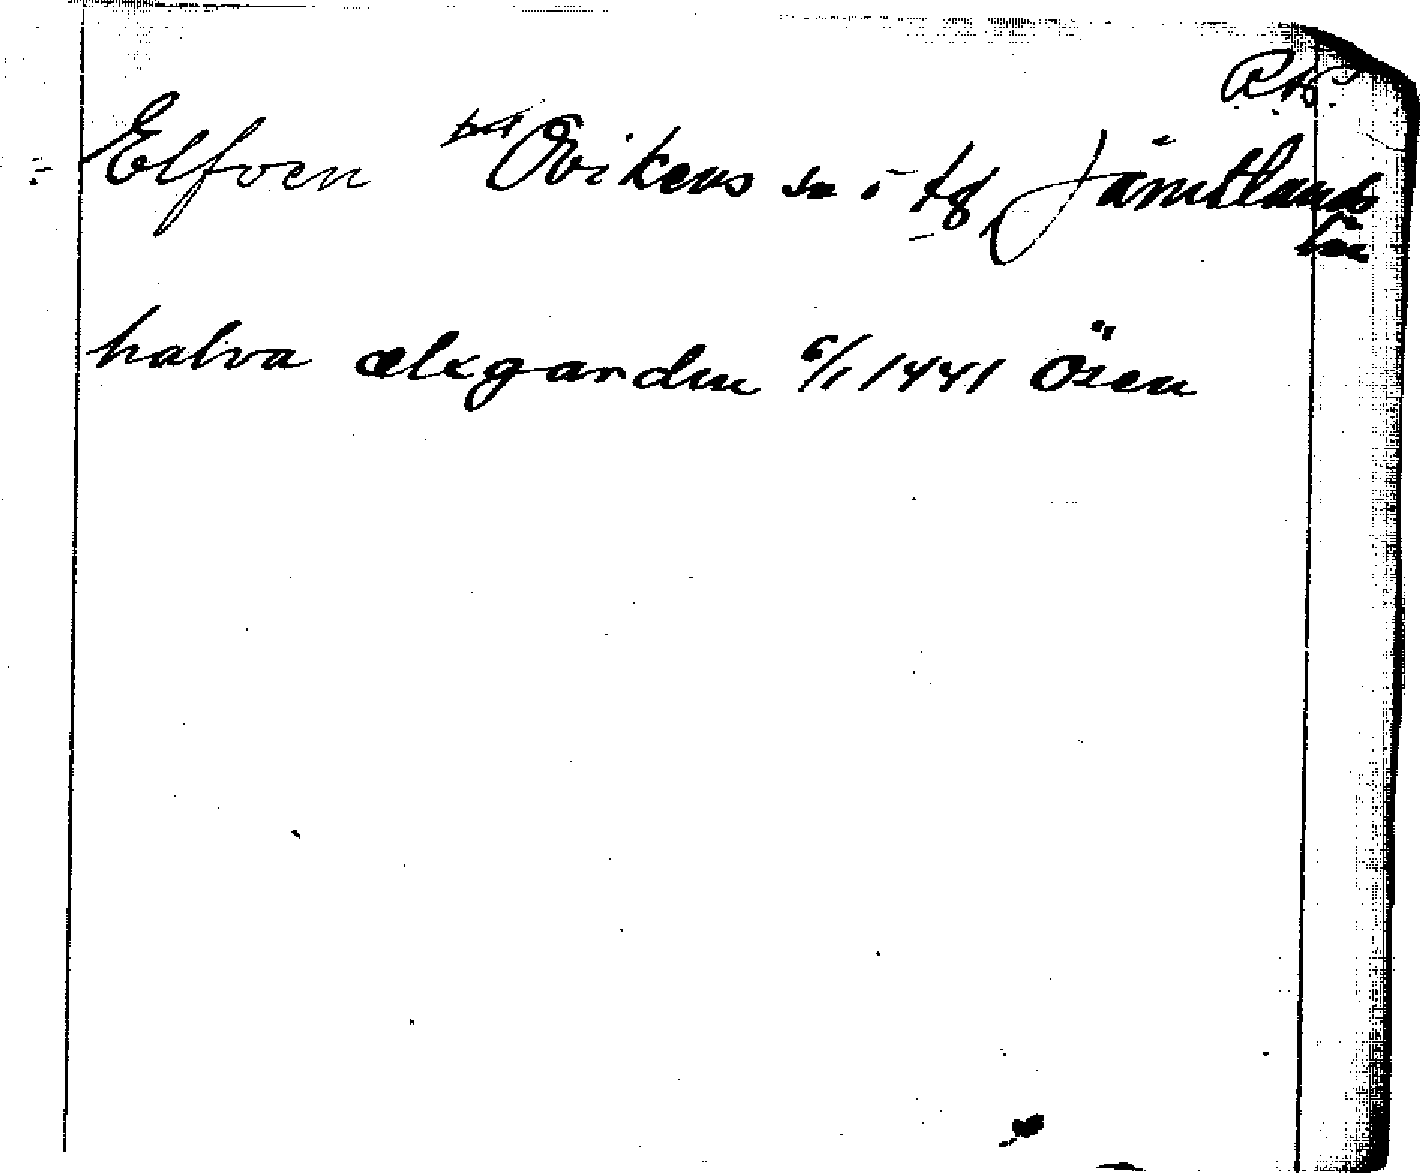 Elfven Ovikens sn i tg Jämtlands
län
halva ælxgarden 6/1 1441 Ösen